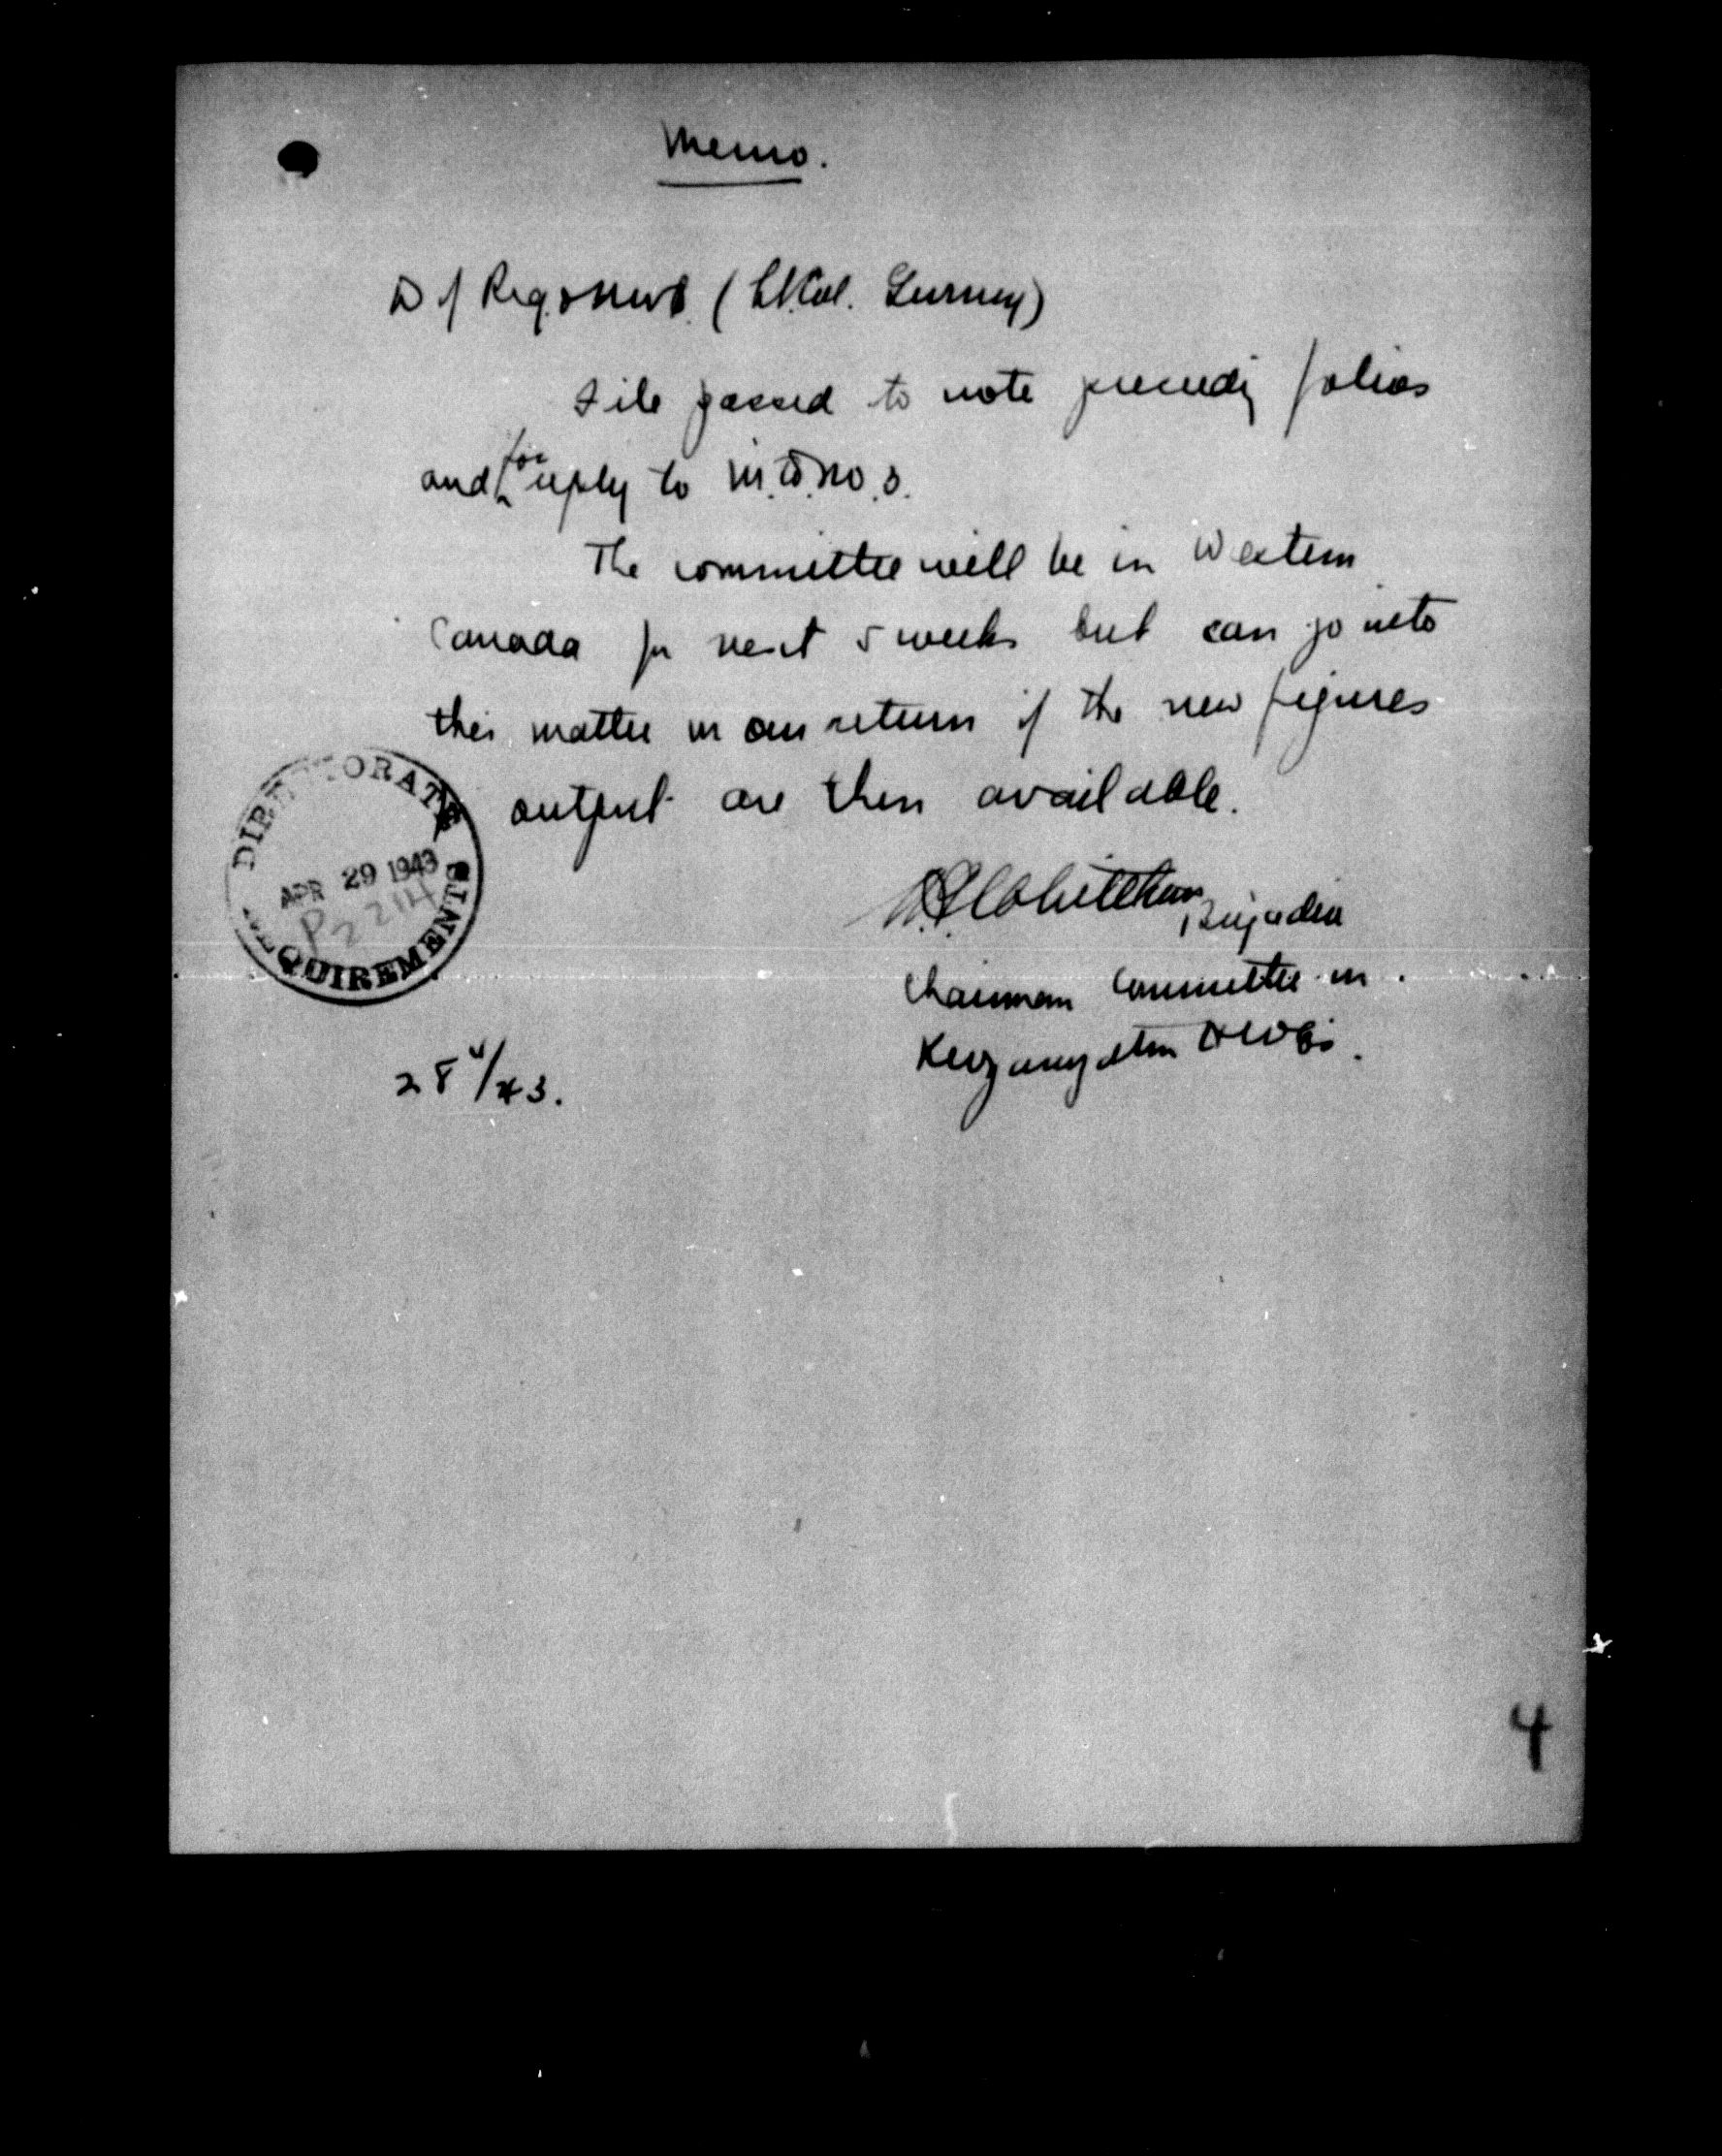 Memo.
D of Reqments. (Lt.Col. Gurney)
File passed to note preceding folios
and for reply to M.D. No. 3.
The committee will be in Western
Canada for next 5 weeks but can go into
this matter on our return if the new figures
output are then available.
Brigadier
Chairman Committee on
DIRECTORATE
APR 29 1943
P2 214
REQUIREMENTS
28 4/43.
4